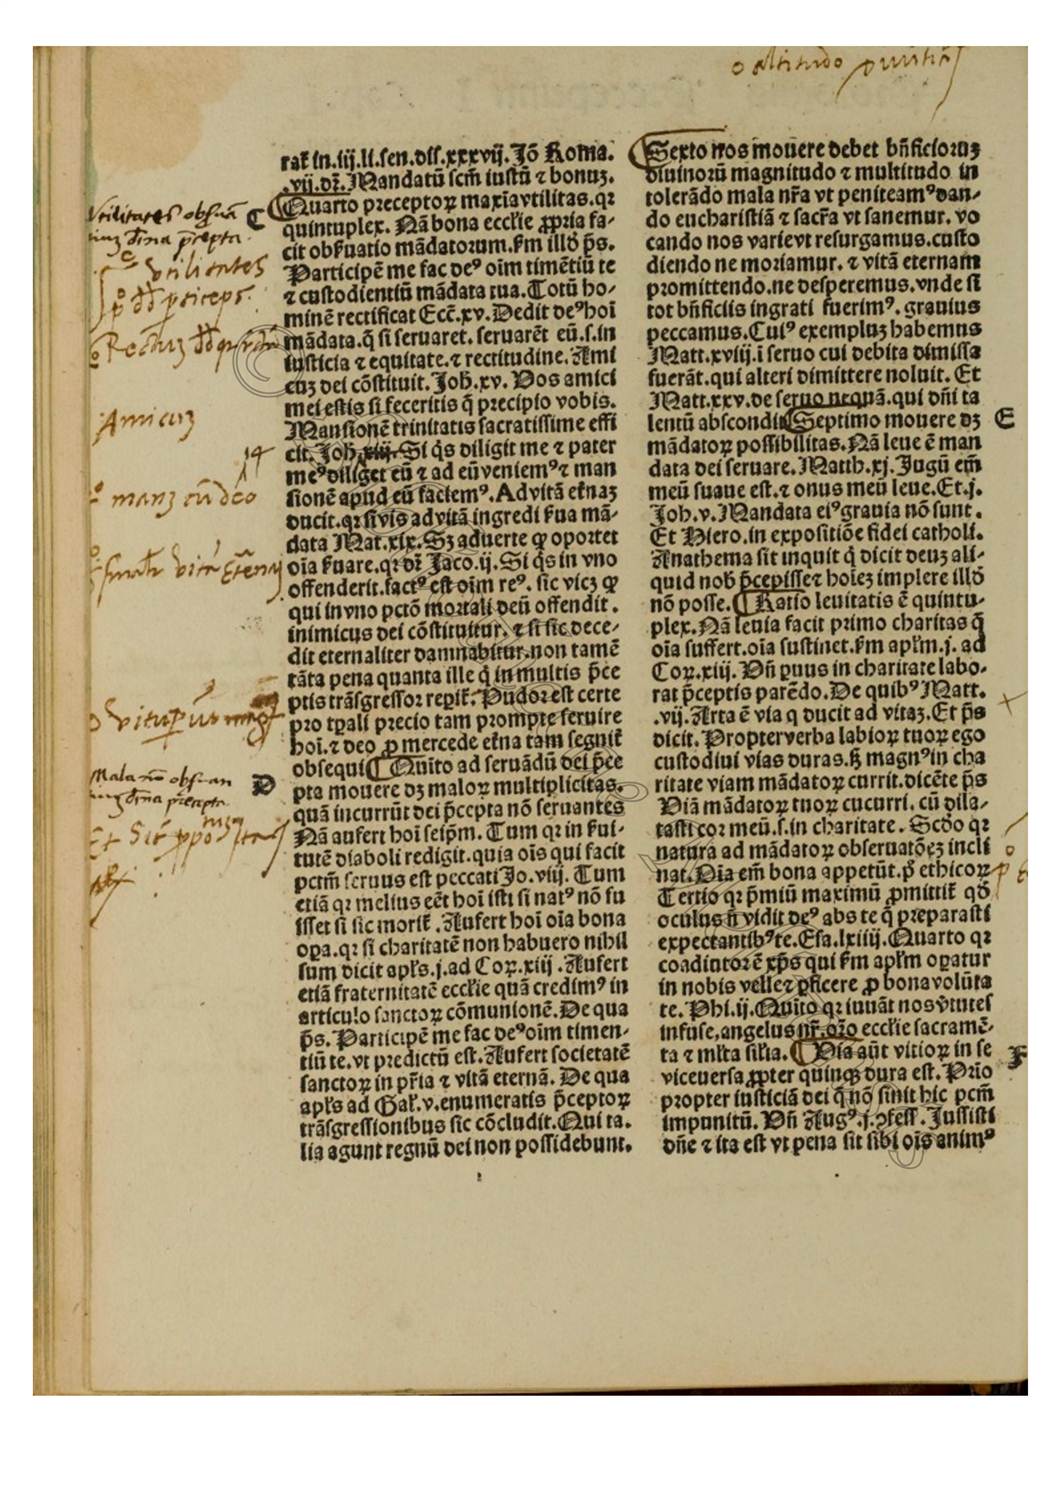 o altitudo
rat̄ in.iij.li.sen.dis.xxxvij.Jō Roma.
.vij.dr̄.Mandatū scm̄ iustū ⁊ bonuꝫ.
Quarto preceptoꝝ maxīa vtilitas.qꝛ
quintuplex. Nā bona eccl̄ie ꝓpria fa-
cit obẜuatio mādatorum.ẜm illđ ps̄.
Participē me fac deꝰ oīm timētiū te
⁊ custodientiū mādata tua.Totū ho-
minē rectificat Ecc̄.xv.Dedit deꝰhoī
mādata.q̄ si seruaret.seruarēt eū.s.in
iusticia ⁊ equitate.⁊ rectitudine.Ami
cuꝫ dei cōstituit.Joh̄.xv. Vos amici
mei estis si feceritis q̄ precipio vobis.
Mansionē trinitatis sacratissime effi
cit.Joh̄.xiiij.Si q̄s diligit me ⁊ pater
meꝰdiliget eū ⁊ ad eū veniemꝰ⁊ man
sionē apud eū faciemꝰ.Ad vitā et̄naꝫ
ducit.qꝛ si vis ad vitā ingredi ẜua mā-
data Mat.xix.Sꝫ aduerte ꝙ oportet
oīa ẜuare.qꝛ dr̄ Jaco.ij.Si q̄s in vno
offenderit.factꝰ est oīm reꝰ. sic vicꝫ ꝙ
qui in vno pctō mortali deū offendit.
inimicus dei cōstituitur.⁊ si sic dece-
dit eternaliter damnabitur.non tamē
tāta pena quanta ille q̄ in multis p̄ce
ptis trāsgressor reꝑit̄.Pudor est certe
pro tꝑali precio tam prompte seruire
hoī.⁊ deo ꝓ mercede et̄na tam segnit̄
obsequi Quīto ad seruādū dei p̄ce
pta mouere dꝫ maloꝝ multiplicitas.
quā incurrūt dei p̄cepta nō seruantes
Nā aufert hoī seip̄m. Tum qꝛ in ẜui-
tutē diaboli redigit.quia oīs qui facit
pctm̄ seruus est peccati Jo.viij. Tum
etiā qꝛ melius eēt hoī isti si natꝰ nō fu
isset si sic morit̄.Aufert hoī oīa bona
oꝑa.qꝛ si charitatē non habuero nihil
sum dicit apl̄s.j.ad Coꝝ.xiij.Aufert
etiā fraternitatē eccl̄ie quā credimꝰ in
articulo sanctoꝝ cōmunionē.De qua
ps̄.Participē me fac deꝰoīm timen-
tiū te.vt predictū est.Aufert societatē
sanctoꝝ in pr̄ia ⁊ vitā eternā. De qua
apl̄s ad Gal̄.v.enumeratis p̄ceptoꝝ
trāsgressionibus sic cōcludit.Qui ta.
lia agunt regnū dei non possidebunt.
Sexto nos mouere debet bn̄ficioruꝫ
diuinorū magnitudo ⁊ multitudo in
tolerādo mala nr̄a vt peniteamꝰdan-
do eucharistiā ⁊ sacr̄a vt sanemur.vo
cando nos varie vt resurgamus.custo
diendo ne moriamur.⁊ vitā eternam
promittendo.ne desperemus.vnde si
tot bn̄ficiis ingrati fuerimꝰ.grauius
peccamus.Cuiꝰ exempluꝫ habemus
Matt.xviij.ī seruo cui debita dimissa
fuerāt.qui alteri dimittere noluit. Et
Matt.xxv.de seruo neq̄uā.qui dn̄i ta
lentū abscondit Septimo mouere dꝫ
mādatoꝝ possibilitas. Nā leue ē man
data dei seruare. Matth.xj. Jugū em̄
meū suaue est.⁊ onus meū leue.Et.j.
Joh.v.Mandata eiꝰgrauia nō sunt.
Et Hiero.in expositiōe fidei catholi.
Anathema sit inquit q̄ dicit deuꝫ ali-
quid nob̄ p̄cepisse⁊ hoīeꝫ implere illđ
nō posse. Ratio leuitatis ē quintu-
plex. Nā leuia facit primo charitas q̄
oīa suffert.oīa sustinet.ẜm apl̄m.j. ad
Coꝝ.xiij. Vn̄ ꝑuus in charitate labo-
rat p̄ceptis parēdo.De quibꝰ Matt.
.vij.Arta ē via q ducit ad vitaꝫ.Et ps̄
dicit.Propter verba labioꝝ tuoꝝ ego
custodiui vias duras.ẜꝫ magnꝰin cha
ritate viam mādatoꝝ currit.dicēte ps̄
Viā mādatoꝝ tuoꝝ cucurri.cū dila-
tasti cor meū.s.in charitate. Scd̄o qꝛ
natura ad mādatoꝝ obseruatōeꝫ incli
nat.Oīa em̄ bona appetūt.ṗ̄ ethicoꝝ
Tertio qꝛ p̄miū maximū ꝓmittit̄ qđ
oculus n̄ vidit deꝰ abs te q̄ preparasti
expectantibꝰte.Esa.lxiiij.Quarto qꝛ
coadiutor ē xp̄s qui ẜm apl̄m oꝑatur
in nobis velle⁊ ꝑficere ꝓ bona volūta
te. Phi.ij. Quīto qꝛ iuuāt nos v̄tutes
infuse,angelus nr̄.or̄o eccl̄ie sacramē-
ta ⁊ ml̄ta sil̄ia. Via aūt vitioꝝ in se
viceuersa ꝓpter quinqꝫ dura est. Prīo
propter iusticiā dei q̄ nō sinit hic pctm̄
impunitū. Vn̄ Augꝰ.j.ꝯfess. Jussisti
dn̄e ⁊ ita est vt pena sit sibi oīs animꝰ
C
D
E
F
Amicuꝫ
14